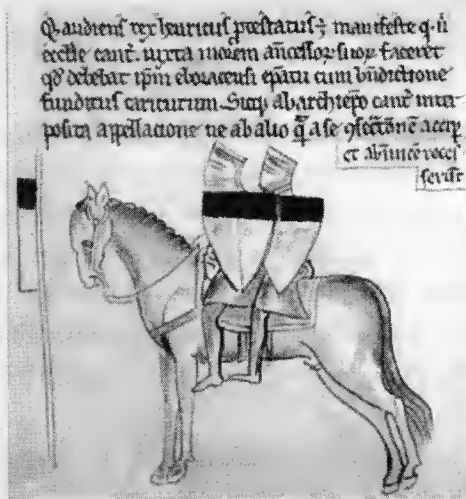 Qd audiens rex henricus p̄testatus ⁊ manifeste q. n̄
eccl̄e cant̄. iuxta morem ancessoꝝ suoꝝ faceret
qd̄ debebat ip̄m eboracensi ep̄atu cum bn̄dictione
funditus cariturum. Sicq; ab archiep̄o cant̄ inter
posita appellacione ne ab alio qͣ̄ a se ꝯsecc̄onē accip̄
et
serūt